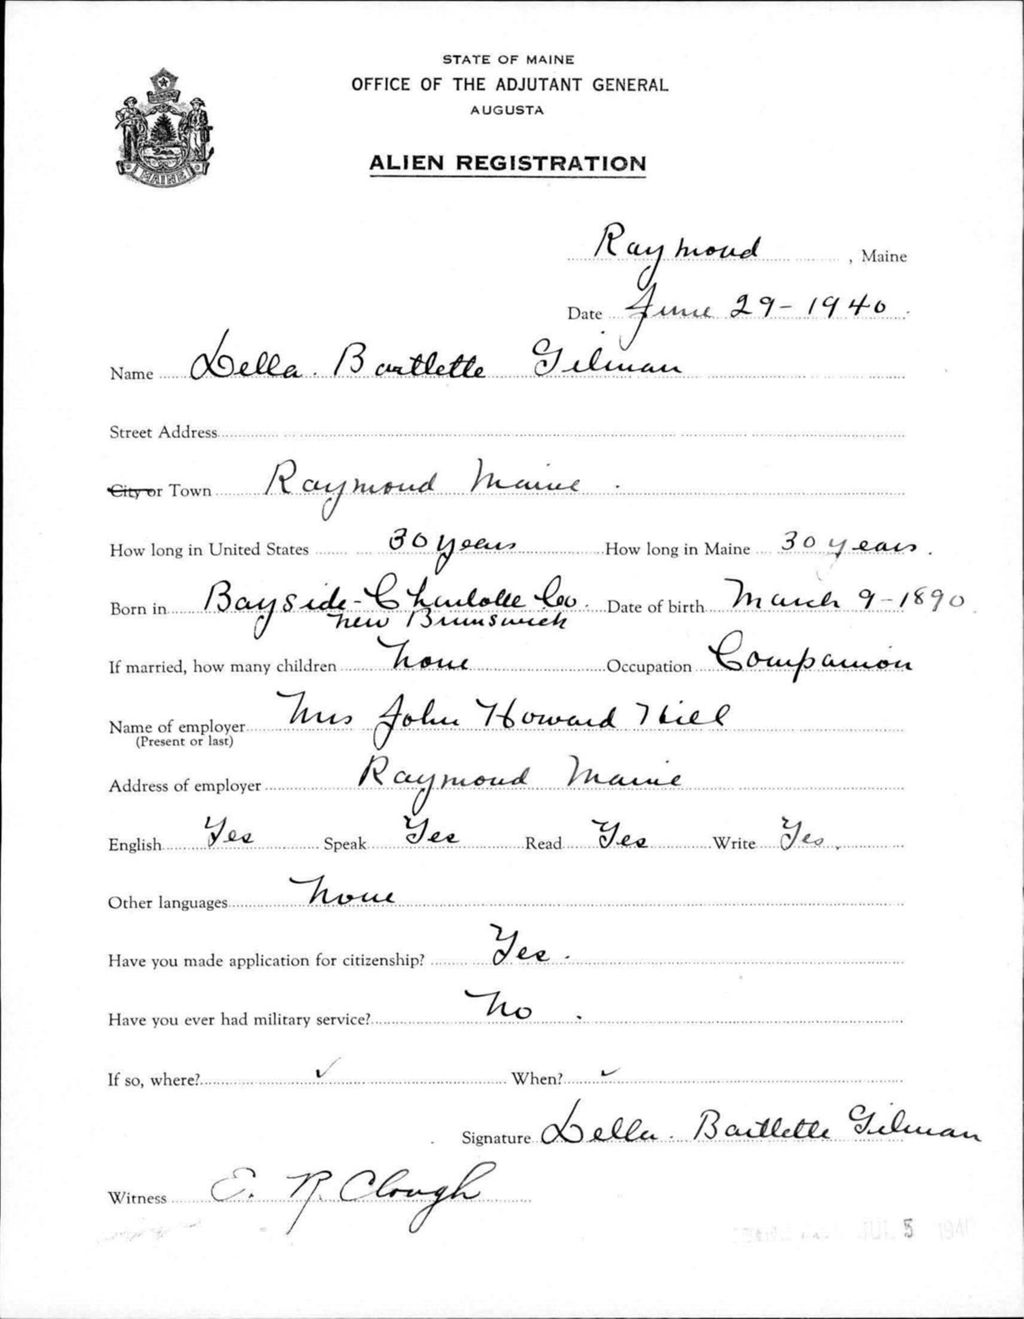 STATE OF MAINE
OFFICE OF THE ADJUTANT GENERAL
AUGUSTA
ALIEN REGISTRATION
MAINE
Raymond, Maine
Date June 29-1940
Name Della. Bartlette Gilman
Street Address
City or Town Raymond Maine.
How long in United States 30 years How long in Maine 30 years.
Born in Bayside-Charlotte Co. Date of birth March 9-1890
New Brunswick
If married, how many children None Occupation Companion
Name of employer Mrs John Howard Hill
(Present or last)
Address of employer Raymond Maine
English Yes Speak Yes Read Yes Write Yes.
Other languages None
Have you made application for citizenship? Yes.
Have you ever had military service? No.
If so, where? ✓ When? ✓
Signature Della. Bartlette Gilman
Witness E. R. Clough
5 194